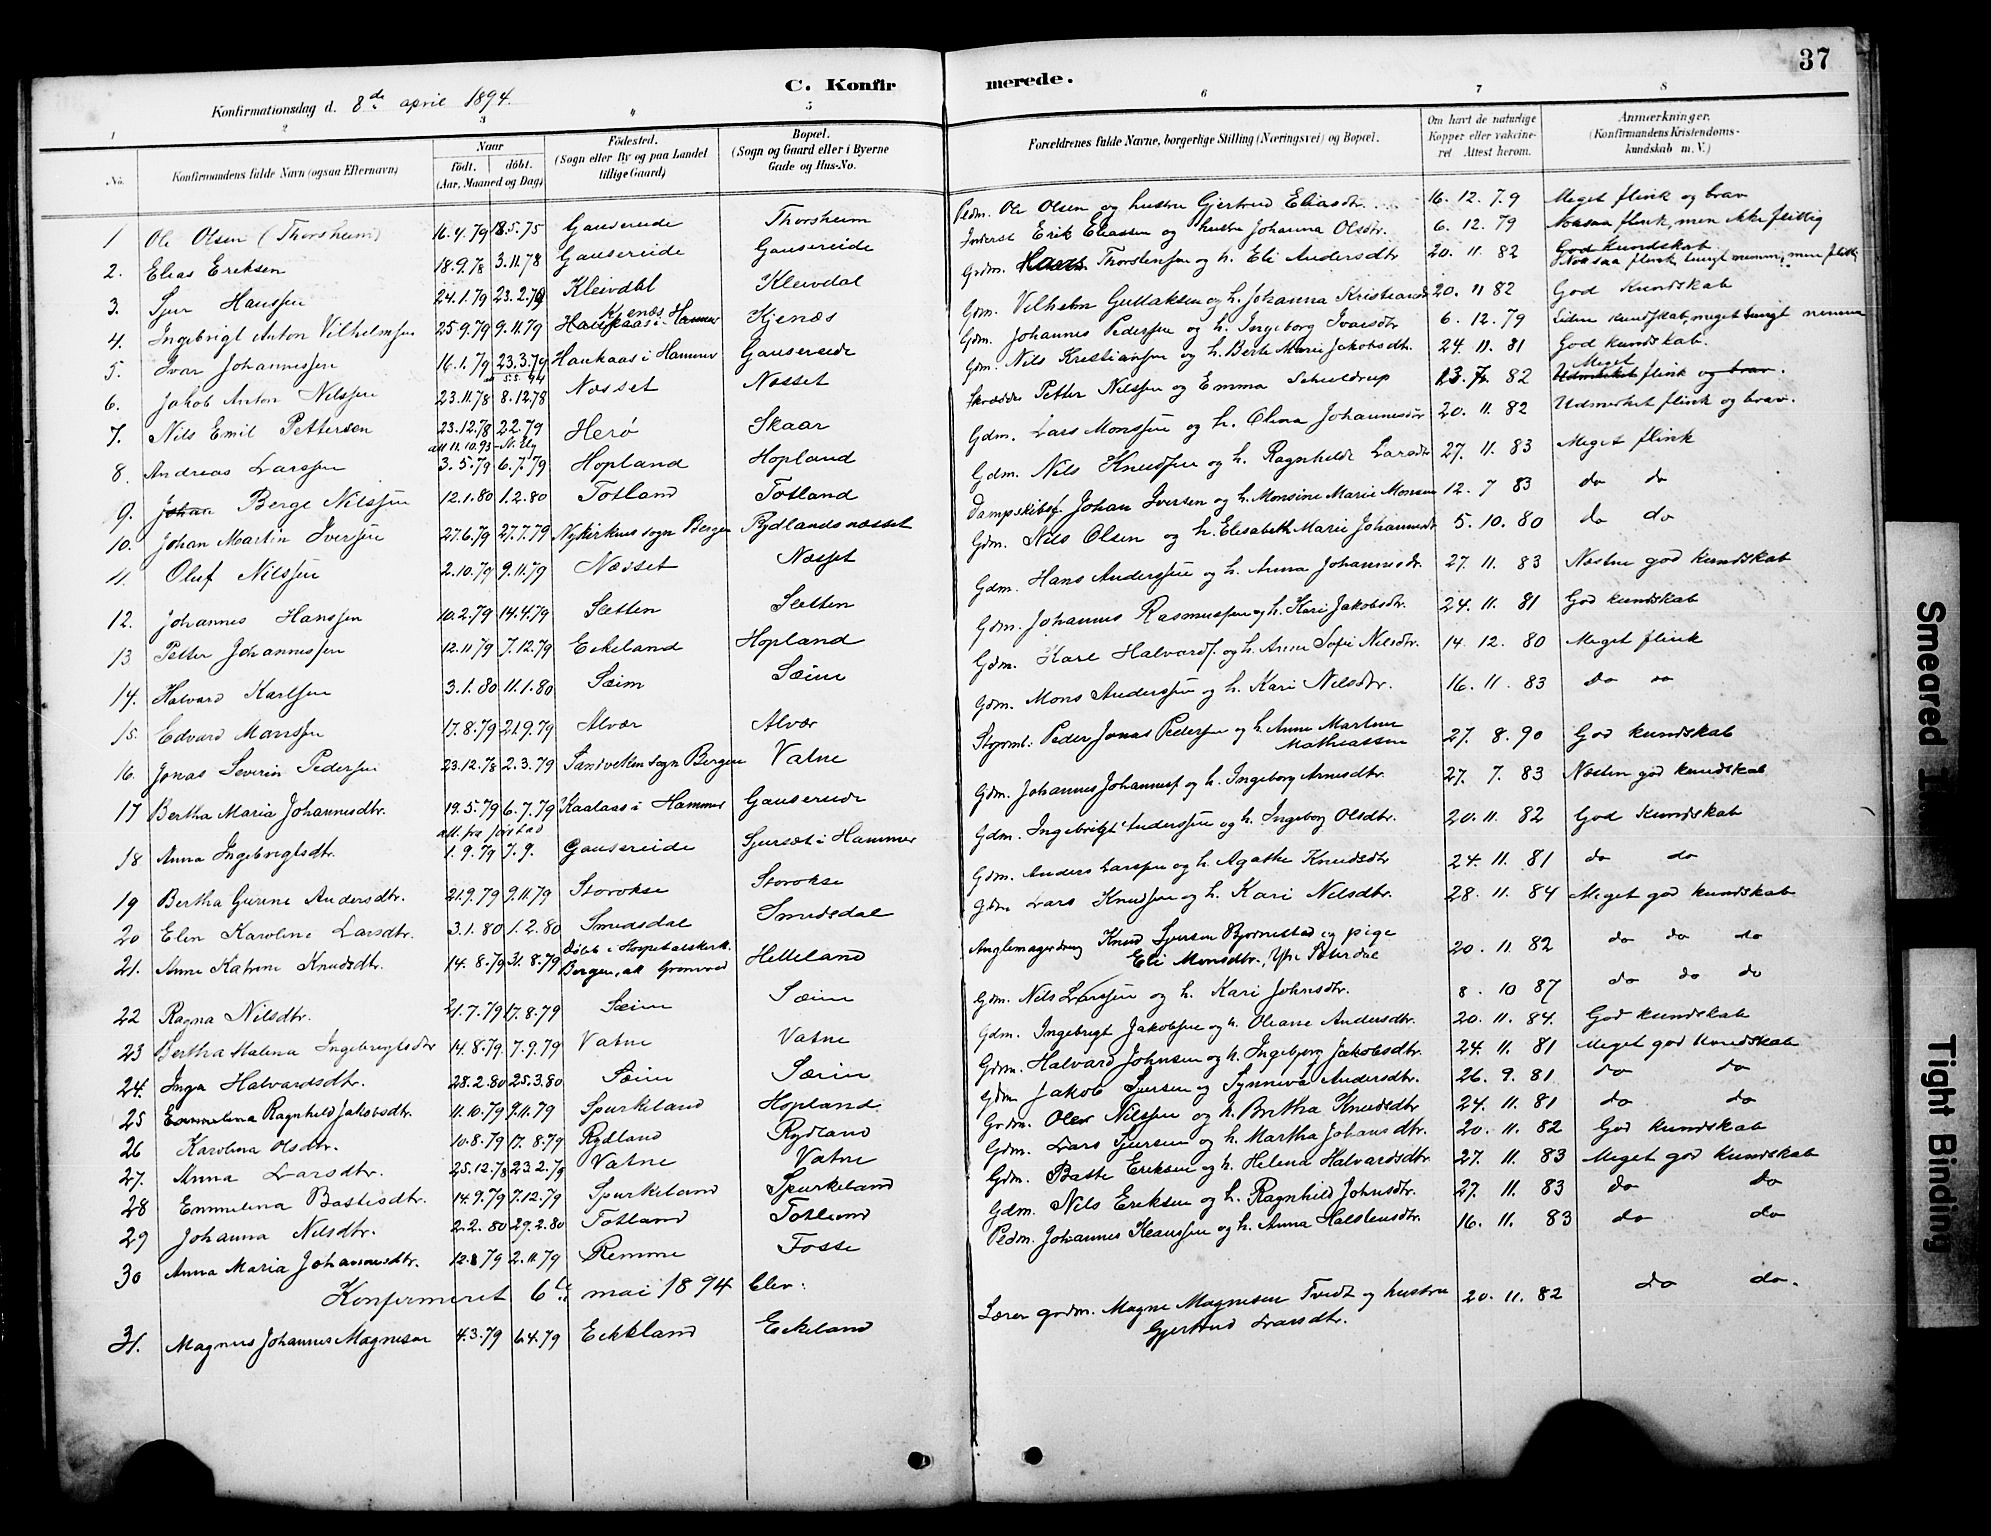 37
C. Konfirmerede.
Konfirmationsdag d. 8de april 1894.
1 2 3 4 5 6 7 8
No. Konfirmandens fulde Navn (ogsaa Efternavn) Naar Födt. döbt. (Aar, Maaned og Dag) Födested. (Sogn eller By og paa Landet tillige Gaard) Bopæl. (Sogn og Gaard eller i Byerne Gade og Hus-No. Forældrenes fulde Navne, borgerlige Stilling (Næringsvei) og Bopæl. Om havt de naturlige Kopper eller vaccineret. Attest herom. Anmærkninger. (Konfirmandens Kristendomskundskab m. V.)
1 Ole Olsen (Thorsheim) 16.4.79 18.5.75 Gausereide Thorsheim Pedm. Ole Olsen og hustru Gjertrud Eliasdtr. 16. 12. 79 Meget flink og brav
2. Elias Eriksen 18.9.78 3.11.78 Gausereide Gausereide Inderst Erik Eliassen og hustru Johanna Olsdtr. 6. 12. 79 Noksaa flink, men ikke flittig
3. Sjur Hanssen 24.1.79 23.2.79 Kleivdal Kleivdal Gdm. Hans Thorstensen og h. Eli Andersdtr 20. 11 82 God kundskab. Noksaa flink, tungt nemme, men flittig
4. Ingebrigt Anton Vilhelmsen 25.9.79 9.11.79 Kjenæs Haukaas i Hammer Kjenæs Gdm. Vilhelm Guttaksen og h. Johanna Kristiansdtr 20. 11 82 God Kundskab
5. Ivar Johannessen 16.1.79 23.3.79 Haukaas i Hammer Gausereide Gdm. Johannes Pedersen og h. Ingeborg Ivarsdtr 6. 12. 79 Liden kundskab, meget tungt nemme
6. Jakob Anton Nilssen 23.11.78 8.12.78 Næsset Næsset Gdm. Nils Kristiansen og h. Berte Marie Jakobsdt. 24. 11. 81 God kundskab.
7. Nils Emil Pettersen 23.12.78 2.2.79 Herö Skaar Skrædder Petter Nilssen og Emma Schieldrup 13. 7. 82 Meget Udmerket flink og brav.
8. Andreas Larssen 3.5.79 6.7.79 Hopland Hopland Gdm. Lars Monssen og h. Olina Johannesdtr 20. 11. 82 Udmerket flink og brav.
9. Johan Berge Nilssen 12.1.80 1.2.80 Totland Totland Gdm. Nils Knudsen og h. Ragnhilde Larsdtr 27. 11. 83 Meget flink
10. Johan Martin Iversen 27.6.79 27.7.79 Nykirkens sogn Bergen Rydlandsnæsset Dampskibsf. Johan Iversen og h. Monsine Marie Monsen 12. 7 83 do do
11. Oluf Nilssen 2.10.79 9.11.79 Næsset Næsset Gdm. Nils Olsen og h. Elisabeth Marie Johannesdt 5. 10. 80 do do
12. Johannes Hanssen 10.2.79 14.4.79 Sletten Sletten Gdm. Hans Anderssen og h. Anna Johannesdr. 27. 11. 83 Næsten god kundskab
13 Petter Johannessen 12.11.79 7.12.79 Eikeland Hopland Gdm. Johannes Rasmussen og h. Kari Jakobsdtr. 24. 11. 81 God kundskab
14. Halvard Karlsen 3.1.80 11.1.80 Sæim Sæim Gdm. Karl Halvards. og h. Anne Sofie Nilsdtr. 14. 12. 80 Meget flink
15. Edvard Monssen 17.8.79 21.9.79 Alvær Alvær Gdm. Mons Anderssen og h. Kari Nilsdtr. 16. 11. 83 do do
16. Jonas Severin Pedersen 23.12.78 2.3.79 Sandviken sogn Bergen Vatne Peder Jonas Pedersen og h. Anne Martine Mathiassen 27. 8. 90 God kundskab
17 Bertha Maria Johannesdtr. 19.5.79 6.7.79 Kaalaas i Hammer Gausereide Gdm. Johannes Johannes. og h. Ingeborg Arnesdtr. 27. 7. 83 Næsten god kundskab
18 Anna Ingebrigtsdtr. 1.9.79 7.9. Gausereide Sjursæt i Hammer Gdm. Ingebrigt Anderssen og h. Ingeborg Olsdtr. 20. 11. 82 God Kundskab
19 Bertha Gurine Andersdtr. 21.9.79 9.11.79 Storokse Storokse Gdm. Anders Larssen og h. Agathe Knudsdtr 24. 11. 81 do do
20 Elen Karoline Larsdtr. 3.1.80 1.2.80 Smedsdal Smedsdal Gdm Lars Knudsen og h. Kari Nilsdtr. 28. 11. 84 Meget god kundskab
21. Anne Katrine Knudsdtr. 14.8.79 31.8.79 Döbt i Hospitalskirk. Bergen, Helleland Knud Sjursen Bjørnestad og pige Eli Monsdtr. 20. 11. 82 do do do
22 Ragna Nilsdtr. 21.7.79 17.8.79 Sæim Sæim Gdm. Nils Larssen og h. Kari Johnsdtr. 8. 10 87 do do do
23 Bertha Malena Ingebrigtsdtr 14.8.79 7.9.79 Vatne Vatne Gdm. Ingebrigt Jakobsen og h. Oleane Andersdtr. 20. 11. 84. God kundskab
24. Inga Halvardsdtr. 28.2.80 25.3.80 Sæim Sæim Gdm. Halvard Johnsen og h. Ingebjørg Jakobsdtr. 24. 11. 81 Meget god kundskab
25 Emmelina Ragnhild Jakobsdtr. 11.10.79 9.11.79 Spurkeland Hopland. Gdm Jakob Sjursen og Synneva Andersdtr. 26. 9. 81 do do
26 Karolina Olsdtr. 10.8.79 17.8.79 Rydland Rydland Grdm. Ole Nilssen og h. Bertha Knudsdtr 24. 11. 81 do do
27. Anna Larsdtr. 25.12.78 23.2.79 Vatne Vatne Gdm. Lars Sjursen og h. Martha Johansdtr. 20. 11. 82 God kundskab
28 Emmelina Bastisdtr. 14.9.79 7.12.79 Spurkeland Spurkeland Gdm. Baste Eriksen og h. Helena Halvardsdtr 27. 11. 83 Meget god kundskab
29 Johanna Nilsdtr. 2.2.80 29.2.80 Totland Totland Gdm. Nils Eriksen og h. Ragnhild Johnsdtr. 27. 11. 83 do do
30 Anna Maria Johannesdtr. 12.8.79 2.11.79 Remme Fosse Pedm. Johannes Klaussen og h. Anna Halstensdtr. 16. 11. 83 do do
Konfirmeret 6te mai 1894 blev:
31. Magnus Johannes Magnesen 4.3.79 6.4.79 Eikeland Eikeland Lærer gdm. Magne Magnesen Tvedt og hustru Gjertrud Larsdtr. 20. 11. 82 do do.
Smeared
Tight Binding